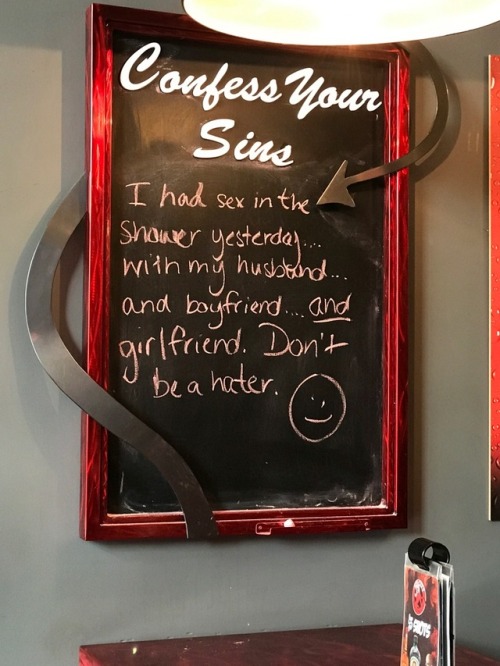 Confess Your
Sins
I had sex in the
shower yesterday....
with my husband...
and boyfriend.... and
girlfriend. Don't
be a hater.
$5 SHOTS